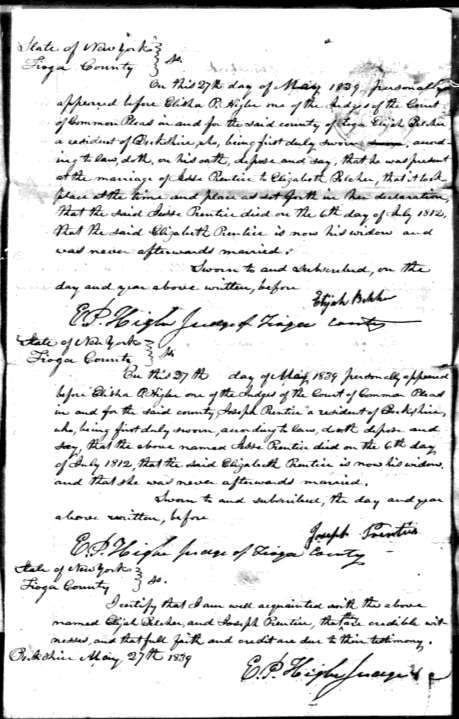 State of New York
Tioga County } ss.
On this 27th day of May 1839, personally
appeared before Elisha P. Higbe one of the Judges of the Court
of Common Pleas in and for the said county of Tioga Elijah Belcher
a resident of Berkshire, who, being first duly sworn, accord-
ing to law, doth, on his oath, depose and say, that he was present
at the marriage of Jesse Prentice to Elizabeth Belcher, that it took
place at the time and place as set forth in her declaration,
that the said Jesse Prentice died on the 6th day of July 1812,
that the said Elizabeth Prentice is now his widow and
was never afterwards married.
Sworn to and subscribed, on the
day and year above written, before
Elijah Belcher
E. P. Higbe Judge of Tioga County
State of New York
Tioga County } ss
On this 27th day of May 1839 personally appeared
before Elisha P. Higbe one of the Judges of the Court of Common Pleas
in and for the said county, Joseph Prentice a resident of Berkshire,
who, being first duly sworn, acording to law, doth depose and
say, that the above named Jesse Prentice died on the 6th day,
of July 1812, that the said Elizabeth Prentice is now his widow
and that she was never afterwards married.
Sworn to and subscribed, the day and year
above written, before
Joseph Prentice
E. P. Higbe Judge of Tioga County
State of New York
Tioga County } ss.
I certify that I am well acquainted with the above
named Elijah Belcher, and Joseph Prentice, that are credible wit-
nesses, and that full faith and credit are due to their testimony.
Berkshire May 27th 1839
E. P. Higbe Judge